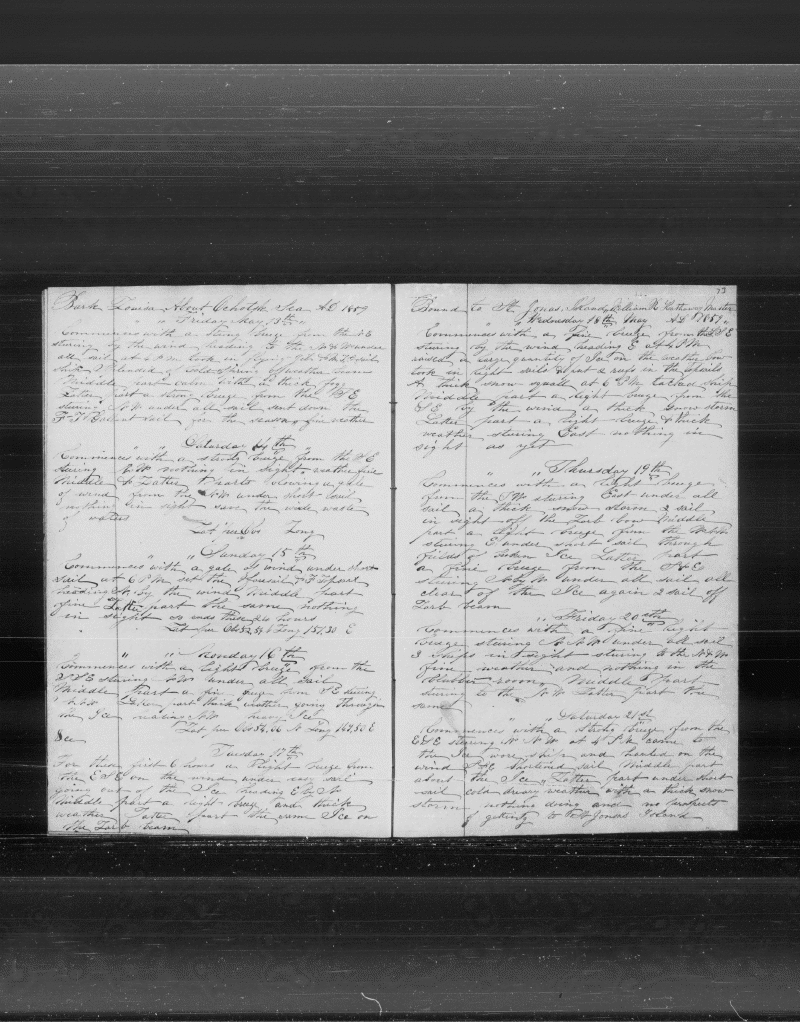 Bark Louisa About Ochotsk Sea AD 1859
" " Friday May 13th "
Commences with a strong breeze from the NE
stering by the wind heading
all sail at 4 P.M took in flying Jib &
Splended & cold spring of weather
Middle part calm thick fog
Latter part a strong breeze from the SE
stering NW under all sail sent down the
sail for the season fine weather
" " Saturday 14th
Commences with a strong breeze from the SE
stering NW nothing in sight weather fine
Middle & Latter parts blowing a gale
of wind from the NW under short sail
nothing in sight save the wide waste
of waters
Lat Long
" " Sunday 15th
Commences with a gale of wind under short
sail at 6 P.M set the
heading by the wind Middle part
fine Latter part the same nothing
in sight so ends these 24 hours
Lat per Obs Long 157,30 E
" " Monday 16th
Commences with a light breeze from the
SSE stering NW under all sail
Middle part a fine breeze from SE stering
NNW Latter part thick weather going through
the Ice heading NW heavy Ice
Lat per Obs N Long E
Ice
Tuesday 17th
For these first 6 hours a light breeze from
the ESE on the wind under easy sail
going out of the Ice heading
Middle part a light breeze and thick
weather Latter part the same Ice on
the Larb beam
73
Bound to St Jonas Island William R Hathaway Master
Wednesday 18th May AD 1859
Commences with a fine breeze from the SSE
stering by the wind heading E at 4 P.M
raised a large quantity of Ice on the weather bow
took in light sails & put 2 reefs in the topsails
A thick snow squall at 6 P.M tacked ship
Middle part a light breeze from the
SSE by the wind a thick snow storm
Latter part a light breeze & thick
weather stering East nothing in
sight as yet
" " Thursday 19th
Commences with a light breeze
from the SW stering East under all
sail a thick snow storm 2 sail
in sight off the Larb bow Middle
part a light breeze from the
stering E under short sail through
fields of broken Ice Latter part
a fine breeze from the SSE
stering under all sail all
clear of the Ice again 2 sail off
Larb beam
" " Friday 20th
Commences with a fine light
breeze stering NW under all sail
3 ships in sight stering to the N&W
fine weather and nothing in the
blubber room Middle part
stering to the NW Latter part the
same
" " Saturday 21st
Commences with a strong breeze from the
ESE stering NNW at 4 P.M came to
the Ice wore ship and headed on the
wind shortened sail Middle part
about the Ice Latter part under short
sail cold dreary weather with a thick snow
storm nothing doing and no prospect
of getting to St Jonas Island